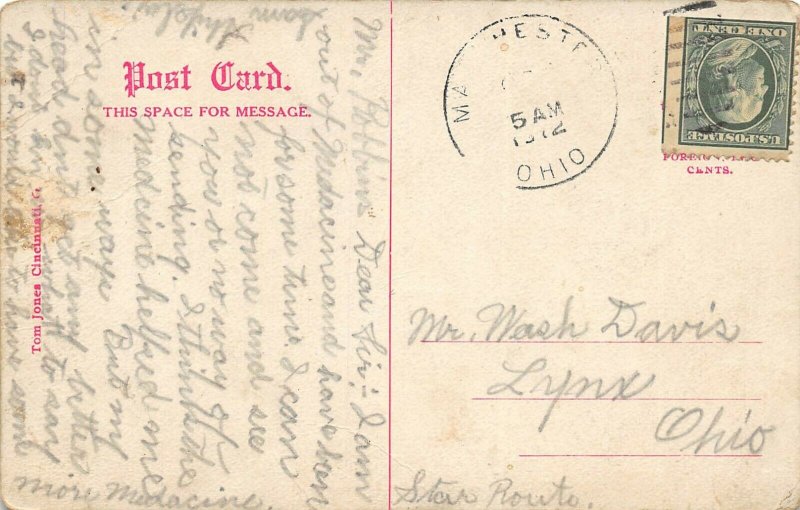 Post Card.
THIS SPACE FOR MESSAGE.
Mr. Dear Sir:- I am
out of Medacine and have been
for some time. I can
not come and see
you or no way of
sending. I think the
medicine helped me
in some ways But my
head dont get any better
I to say
to have some
more Medacine.
Tom Jones Cincinnati, O
MANCHESTER
5 AM
1912
OHIO
ONE CENT
U.S. POSTAGE
FOREIGN
CENTS.
Mr. Wash Davis
Lynx
Ohio
Star Route.